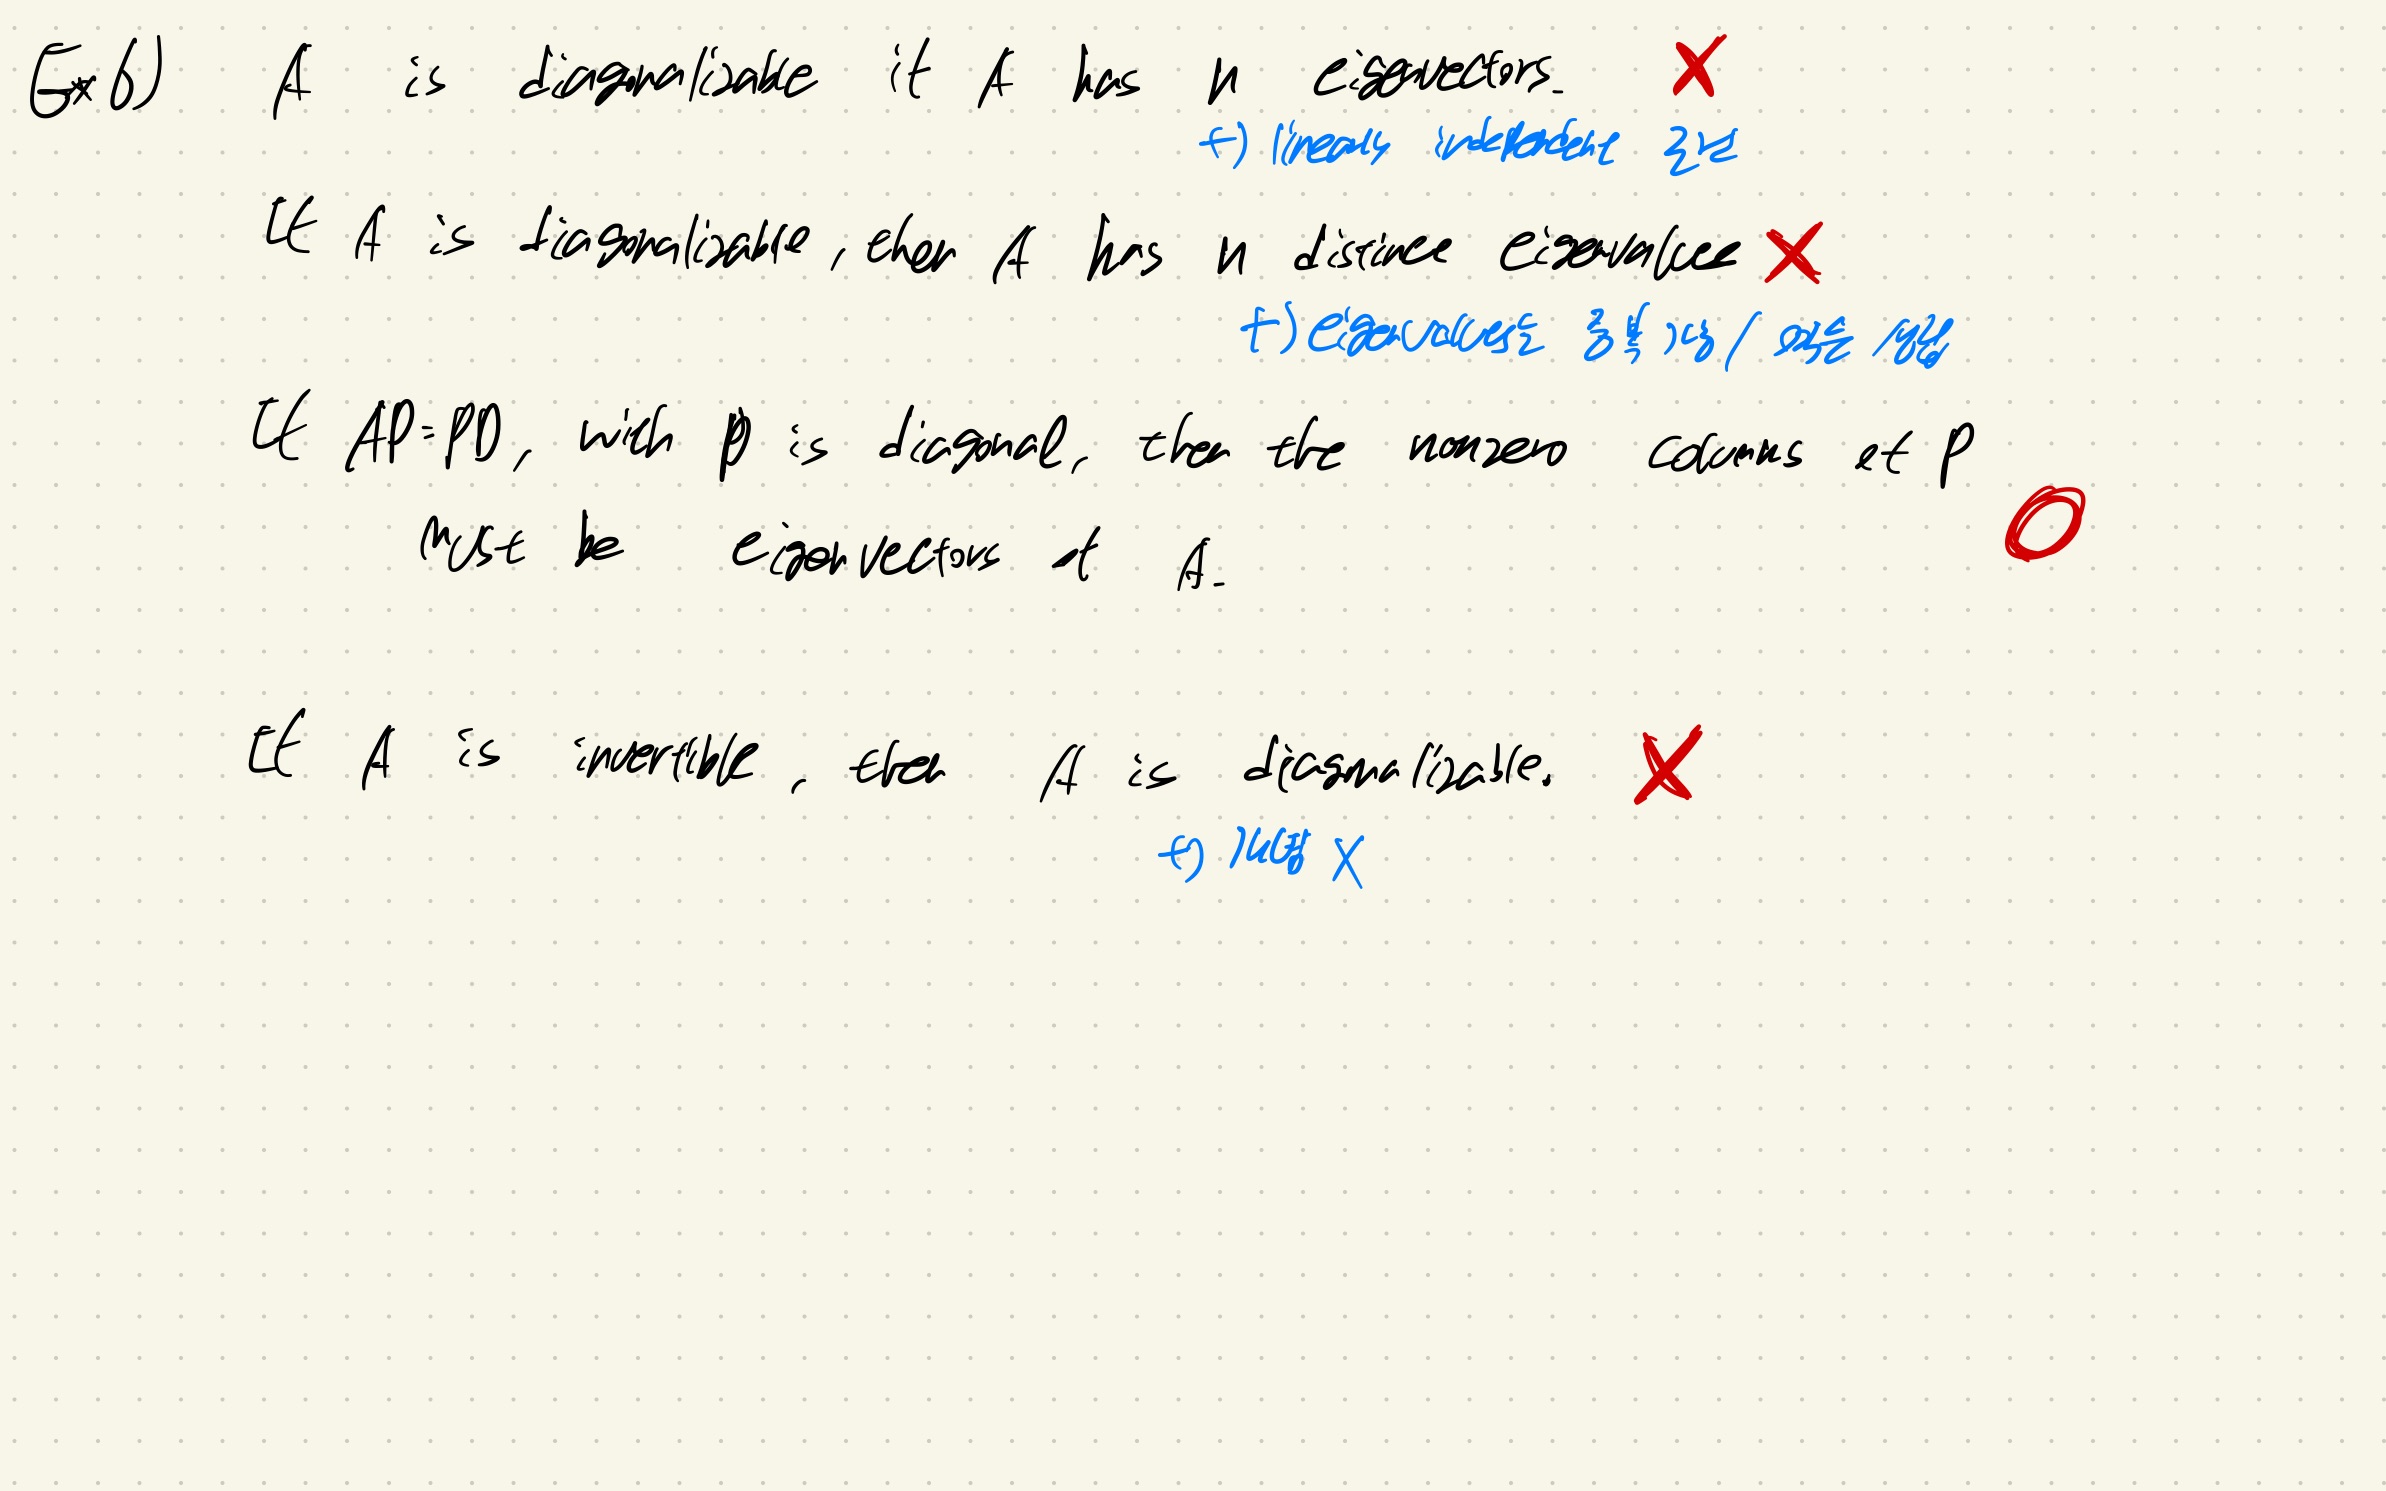 Ex 6) A is diagonalizable if A has n eigenvectors. X
+) linearly independent
If A is diagonalizable, then A has n distinct eigenvalues X
+) eigenvalues는 중복 가능 / 역은 성립
If AP=PD, with D is diagonal, then the nonzero columns of P
must be eigenvectors of A. O
If A is invertible, then A is diagonalizable. X
+) X